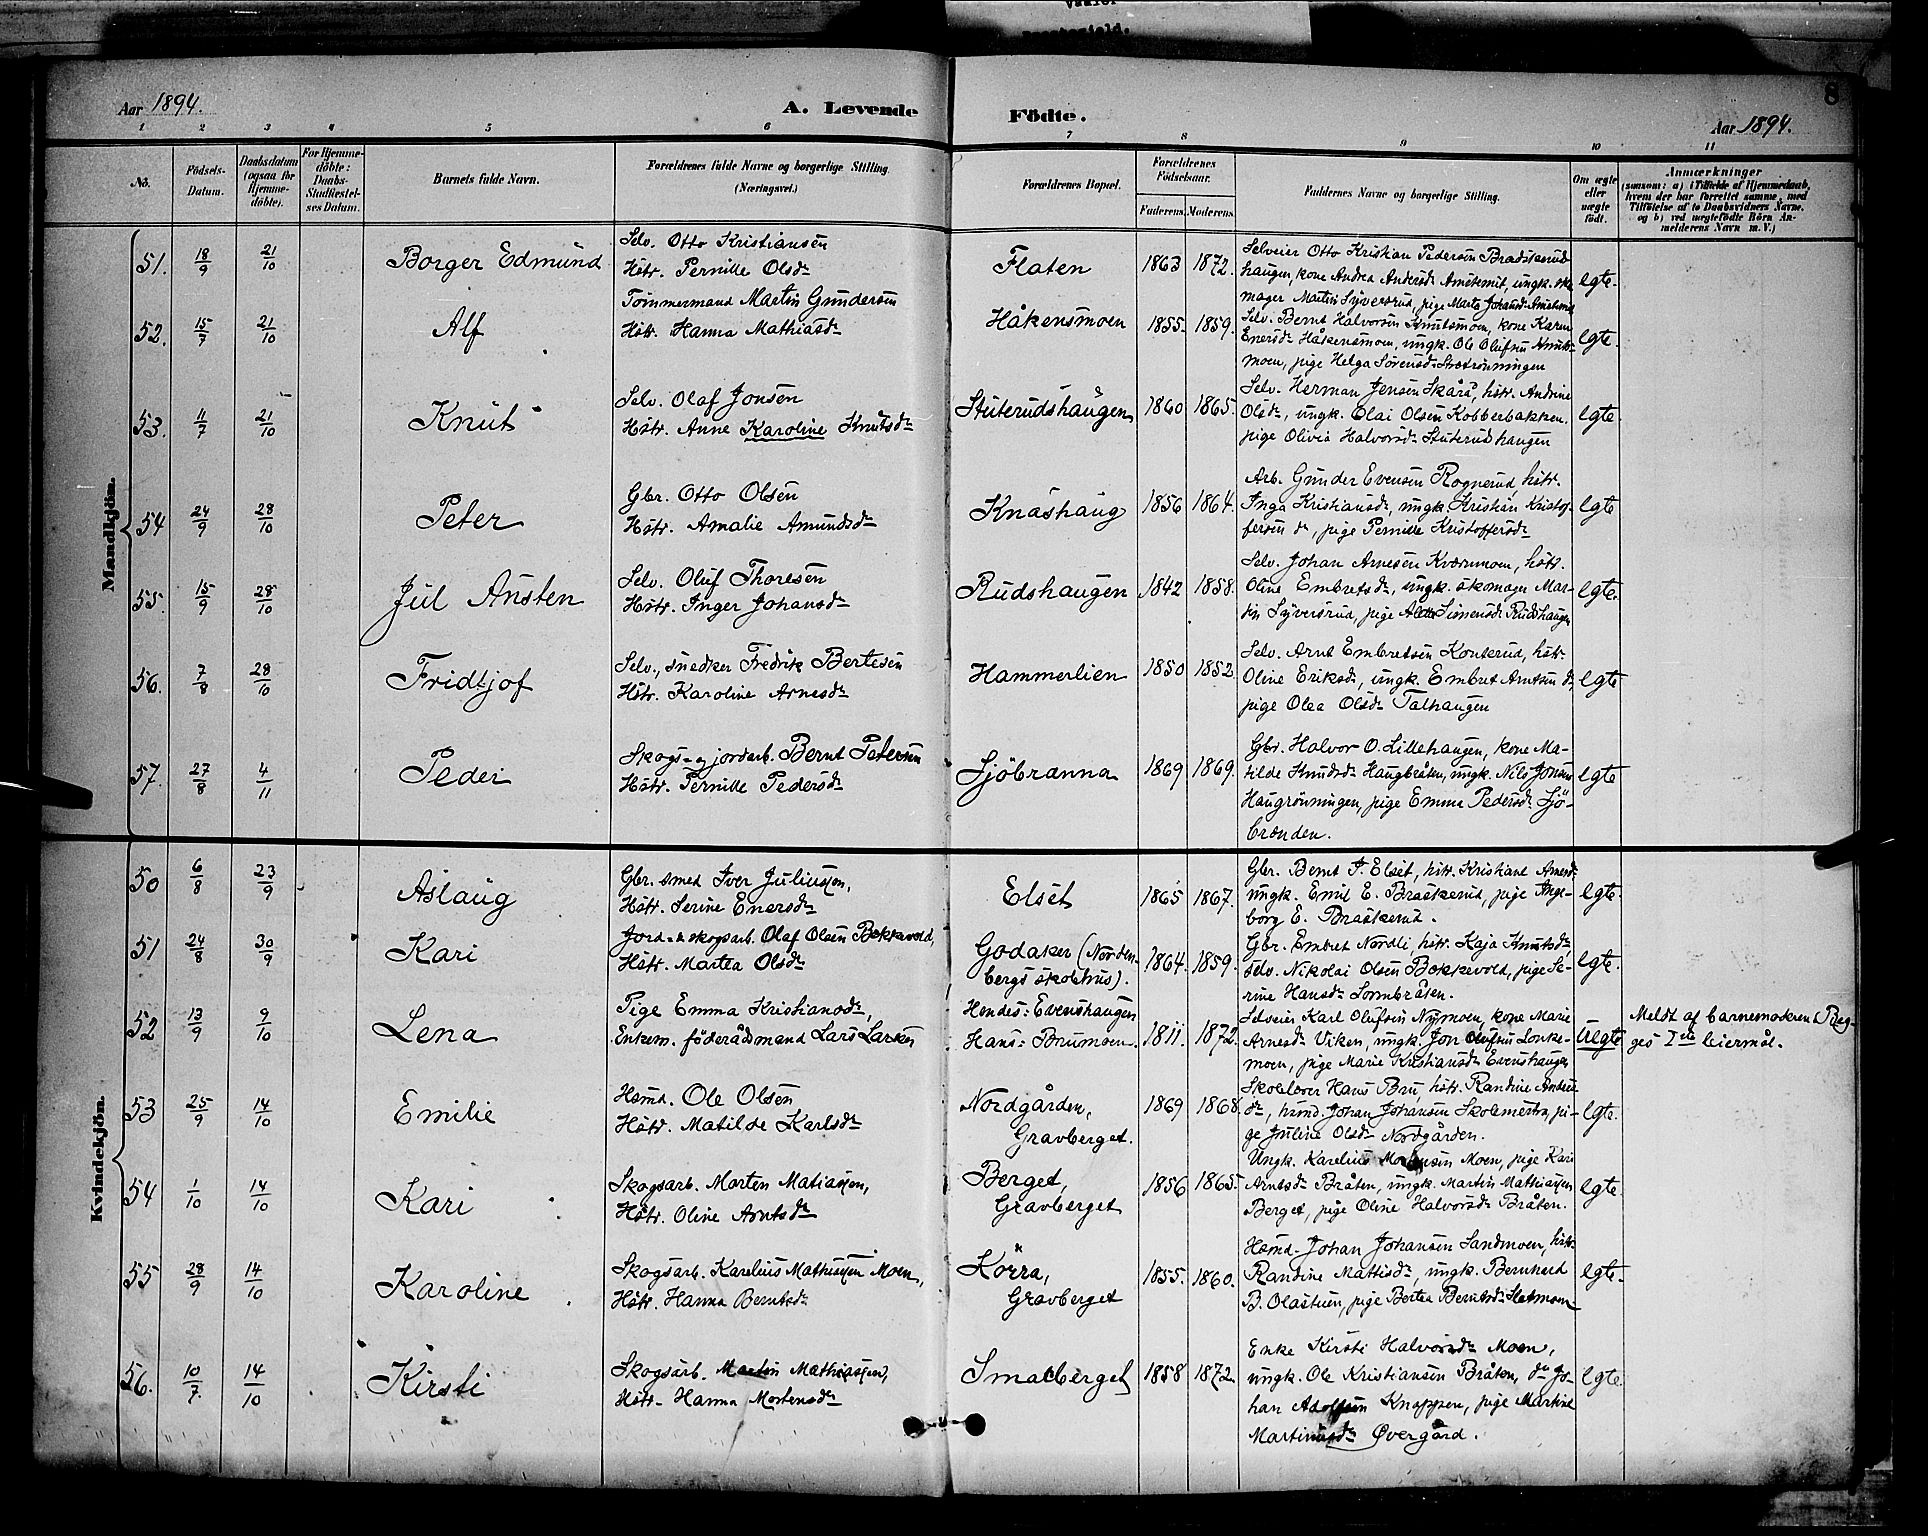 Vaaler
præstegjeld.
8
Aar 1894.
A. Levende Födte.
Aar 1894.
1 2 3 4 5 6 7 8 9 10 11
No.
Födsels-Datum.
Daabsdatum (ogsaa for Hjemme-döbte).
For Hjemme-döbte: Daabs-Stadfæstel-ses Datum.
Barnets fulde Navn.
Forældrenes fulde Navne og borgerlige Stilling. (Næringsvei.)
Forældrenes Bopæl.
Forældrenes Födselsaar.
Faderens. Moderens.
Faddernes Navne og borgerlige Stilling.
Om ægte eller uægte födt.
Anmærkninger
(saasom: a) i Tilfælde af Hjemmedaab,
hvem der har forrettet samme, med
Tilföielse af to Daabsvidners Navne,
og b) ved uægtefödte Börn An-
melderens Navn m. V.)
Mandkjön.
51. 18/9 21/10 Borger Edmund
Selv. Otto Kristiansen
Hstr. Pernille Olsdr
Flaten 1863 1872.
Selveier Otto Kristian Pedersen Bradskerud
haugen, kone Andrea Andersdr ungk. sko
mager Martin Syversrud, pige Marta Johansdr
egte.
52. 15/7 21/10 Alf
Tømmermand Martin Gundersen
Hstr. Hanna Mathiasdr
Håkensmoen 1855. 1859.
Selv. Bernt Halvorsen Knutsmoen, kone Karen
Enersdr Håkensmoen, ungk. Ole Olufsen Knuts-
moen, pige Helga Sørensdr
egte.
53. 11/7 21/10 Knut
Selv. Olaf Jonsen
Hstr. Anne Karoline Knutsdr
Stuterudshaugen 1860 1865.
Selv. Herman Jensen Skårå, hstr. Andrine
Olsdr, ungk. Olai Olsen Kobberbakken.
pige Olivia Halvorsdr Stuterudhaugen
egte.
54 24/9 28/10 Peter
Gbr. Otto Olsen
Hstr. Amalie Amundsdr
Knashaug 1856 1864.
Arb. Gunder Evensen Rognerud, hstr.
Inga Kristiansdr, ungk. Kristian Kristof-
fersen do, pige Pernille Kristoffersdr
egte
55. 15/9 28/10 Jul Austen
Selv. Oluf Thoresen
Hstr. Inger Johansdr
Rudshaugen 1842 1858.
Selv. Johan Arnesen Kværnmoen, hstr.
Oline Embretsdr, ungk. skomager Mar-
tin Syversrud, pige Alette Simensdr Rudshaugen
egte.
56. 7/8 28/10 Fridtjof
Selv., snedker Fredrik Bertesen
Hstr. Karoline Arnesdr
Hammerlien 1850 1852
Selv. Arnt Embretsen Konterud, hstr.
Oline Eriksdr, ungk. Embret Arntsen do,
pige Olea Olsdr Talhaugen
egte
57. 27/8 4/11 Peder
Skogs- og jordarb. Bernt Petersen
Hstr. Pernille Pedersdr
Sjöbranna 1869 1869.
Gbr. Halvor O. Lillehaugen, kone Ma-
tilde Knudsdr Haugbråten, ungk. Nils Jonsen
Haugrönningen, pige Emma Pedersdr Sjö-
brænden.
egte
Kvindekjön.
50 6/8 23/9 Aslaug
Gbr. smed Iver Juliussen,
Hstr. Serine Enersdr
Elset 1865 1867.
Gbr. Bernt J. Elset, hstr. Kristiane Arnesdr
ungk. Emil E. Braskerud, pige Inge-
borg E. Braskerud.
egte.
51 24/8 30/9 Kari
Jord- & skogsarb. Olaf Olsen Bekkevold,
Hstr. Martea Olsdr
Godaker (Norden-
bergs skolehus). 1864. 1859.
Gbr. Embret Nordli, hstr. Kaja Knutsdr
selv. Nikolai Olsen Bekkevold, pige Se-
rine Hansdr Sormbråten.
egte.
52 13/9 9/10 Lena
Pige Emma Kristiansdr,
Enkem. föderådsmand Lars Larsen
Hendes: Evenshaugen
Hans: Brumoen. 1811. 1872.
Selveier Karl Olufsen Nymoen, kone Marie
Arnesdr Viken, ungk. Jon Olufsen Lonke-
moen, pige Marie Kristiansdr Evenshaugen
Uegte
Meldt af barnemoderen. Beg-
ges 1ste leiermål.
53 25/9 14/10 Emilie
Hsmd. Ole Olsen
Hstr. Matilde Karlsdr
Nordgården,
Gravberget. 1869 1868.
Skolelærer Hans Bru, hstr. Randine Anders
dr, hsmd. Johan Johansen Skolemestra, pi-
ge Juline Olsdr Nordgården.
egte.
54 1/10 14/10 Kari
Skogsarb. Morten Matiassen,
Hstr. Oline Arntsdr
Berget,
Gravberget 1856 1865.
Ungk. Karelius Mortensen Moen, pige Kari
Arntsdr Bråten, ungk. Martin Mathiassen
Berget, pige Oline Halvorsdr Bråten.
egte.
55 28/9 14/10 Karoline
Skogsarb. Karelius Mathiassen Moen,
Hstr. Hanna Berntsdr
Körra,
Gravberget 1855. 1860.
Hsmd. Johan Johansen Sandmoen, hstr.
Randine Mattisdr, ungk. Bernhard
B. Olastuen, pige Bertea Berntsdr Sletmoen
egte.
56. 10/7 14/10 Kirsti
Skogsarb. Martin Mathiassen,
Hstr. Hanna Mortensdr
Smaaberget 1858 1872
Enke Kirsti Halvorsdr Moen,
ungk. Ole Kristiansen Bråten, do Jo-
han Adolfsen Knappen, pige Martine
Martinusdr Övergård.
egte.